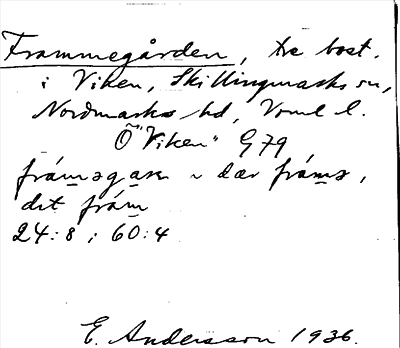 Frammegården, tre bost.
i Viken, Skillingmarks sn,
Nordmarks hd, Vrml l.
Ö "Viken" G79
frámǝgaɹn ~ dær frámǝ,
dit frám
24:8; 60:4
E. Andersson 1936.